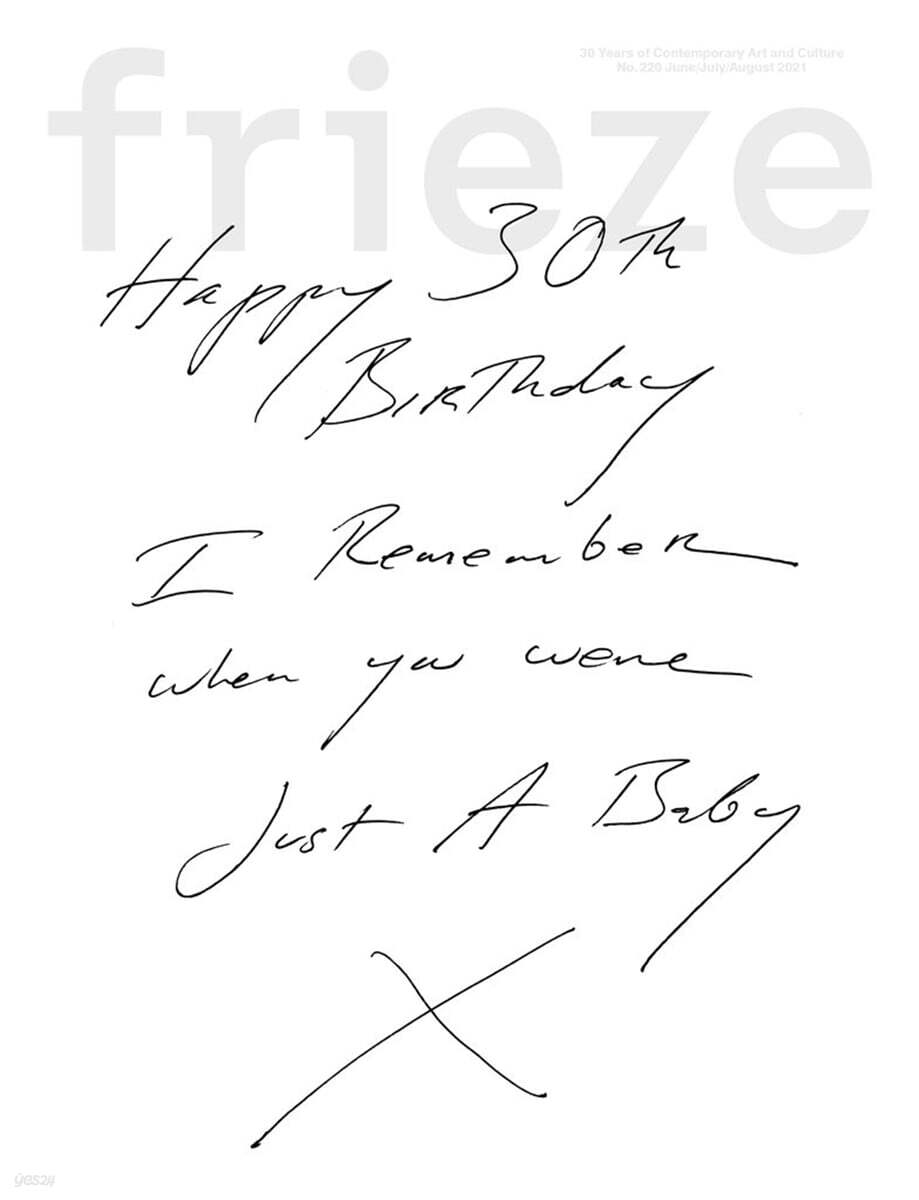 30 Years of Contemporary Art and Culture
No. 220 June/July/August 2021
frieze
Happy 30Th
BIRThday
I Remember
when you were
Just A Baby
X
yes24